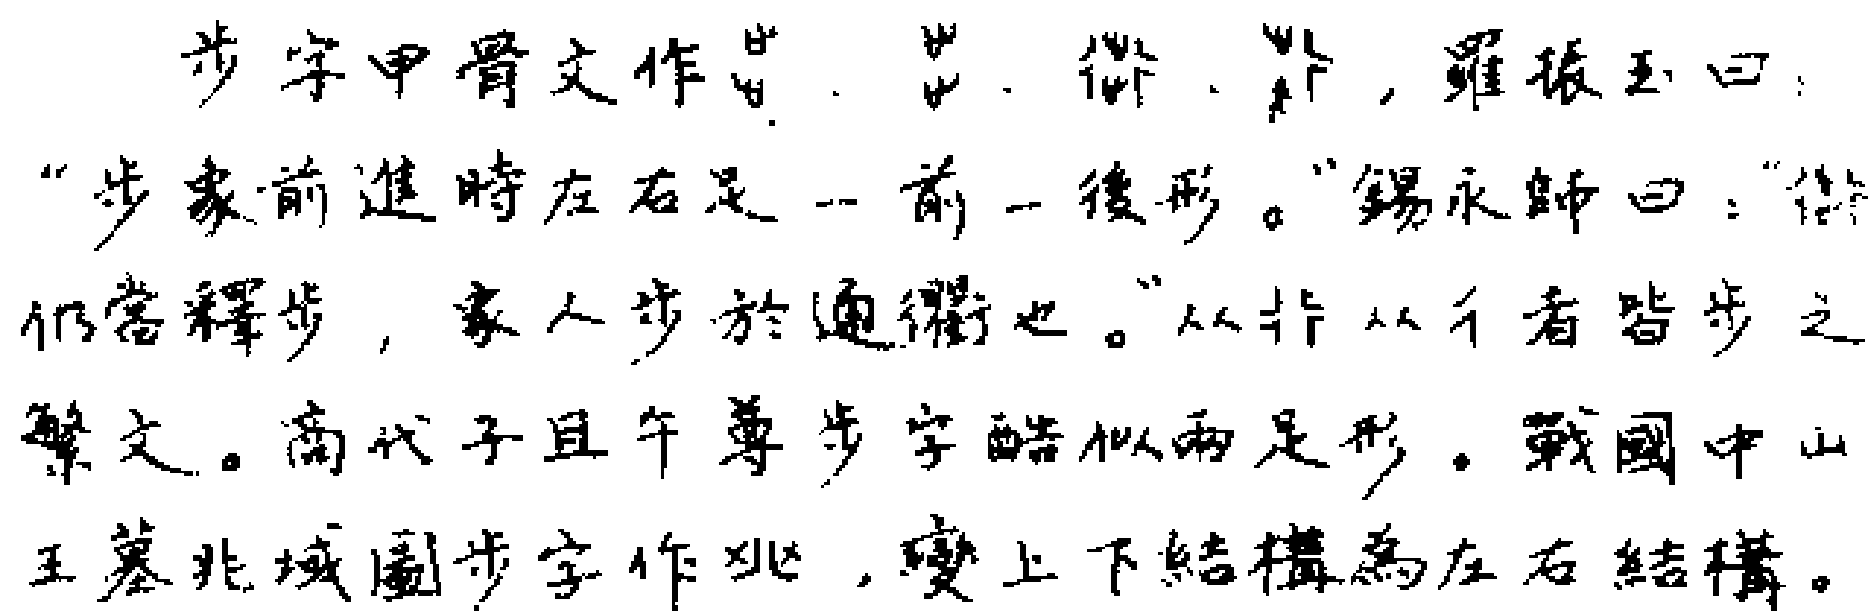 步字甲骨文作、、、，羅振玉曰：
“步象前進時左右足一前一後形。”錫永師曰：“
仍當釋步，象人步於通衢也。”从 从彳者皆步之
繁文。商代子且午尊步字酷似兩足形。戰國中山
王墓兆域圖步字作，變上下結構為左右結構。